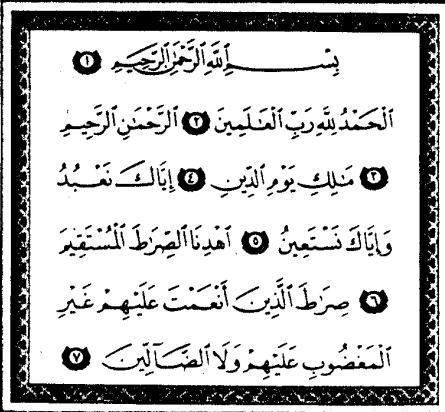 بِسْمِ ٱللَّهِ ٱلرَّحْمَٰنِ ٱلرَّحِيمِ ١
ٱلْحَمْدُ لِلَّهِ رَبِّ ٱلْعَٰلَمِينَ ٢ ٱلرَّحْمَٰنِ ٱلرَّحِيمِ
٣ مَٰلِكِ يَوْمِ ٱلدِّينِ ٤ إِيَّاكَ نَعْبُدُ
وَإِيَّاكَ نَسْتَعِينُ ٥ ٱهْدِنَا ٱلصِّرَٰطَ ٱلْمُسْتَقِيمَ
٦ صِرَٰطَ ٱلَّذِينَ أَنْعَمْتَ عَلَيْهِمْ غَيْرِ
ٱلْمَغْضُوبِ عَلَيْهِمْ وَلَا ٱلضَّآلِّينَ ٧